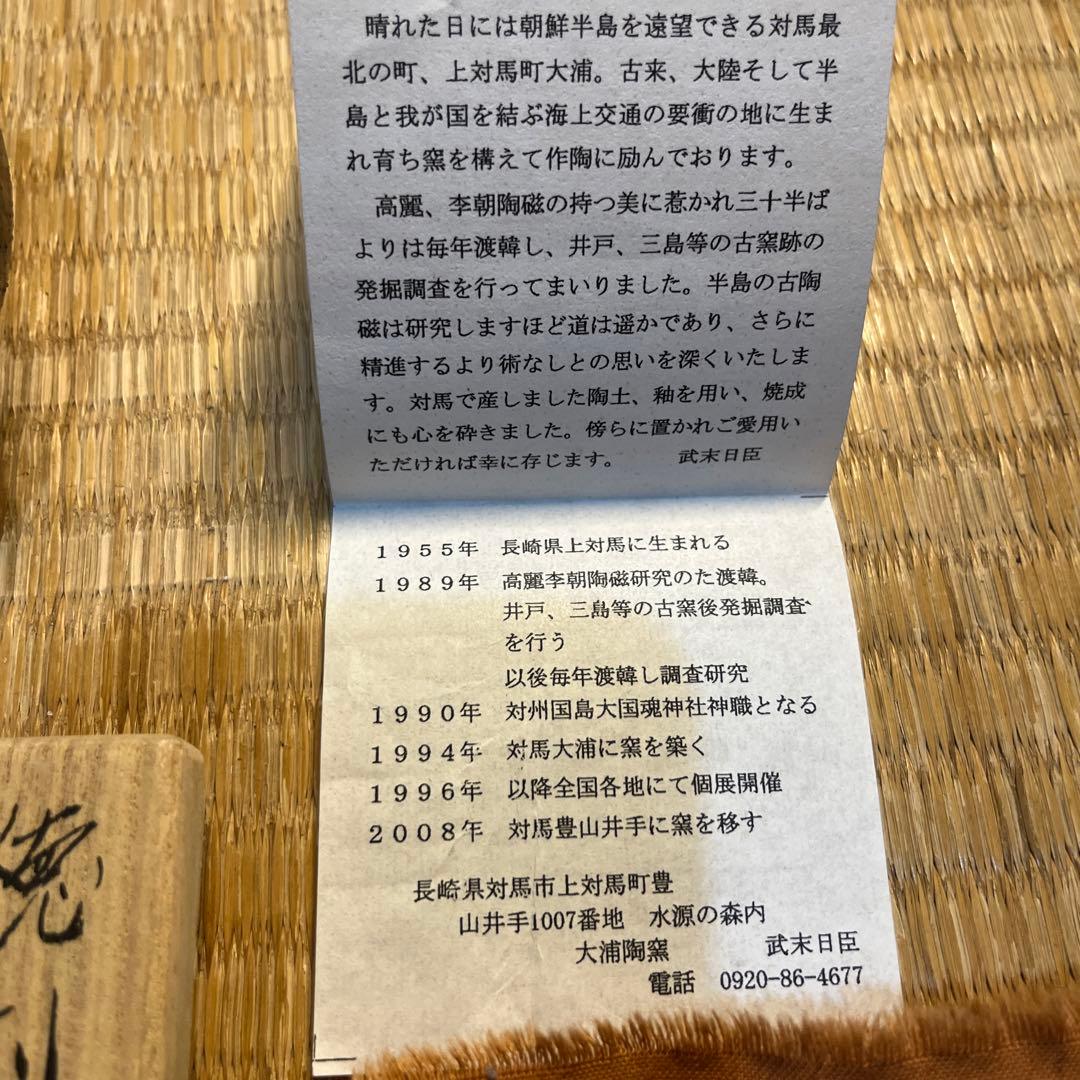 晴れた日には朝鮮半島を遠望できる対馬最
北の町、上対馬町大浦。古来、大陸そして半
島と我が国を結ぶ海上交通の要衝の地に生ま
れ育ち窯を構えて作陶に励んでおります。
高麗、李朝陶磁の持つ美に惹かれ三十半ば
よりは毎年渡韓し、井戸、三島等の古窯跡の
発掘調査を行ってまいりました。半島の古陶
磁は研究しますほど道は遥かであり、さらに
精進するより術なしとの思いを深くいたしま
す。対馬で産しました陶土、釉を用い、焼成
にも心を砕きました。傍らに置かれご愛用い
ただければ幸に存じます。 武末日臣
1955年 長崎県上対馬に生まれる
1989年 高麗李朝陶磁研究のた渡韓。
井戸、三島等の古窯後発掘調査
を行う
以後毎年渡韓し調査研究
1990年 対州国島大国魂神社神職となる
1994年 対馬大浦に窯を築く
1996年 以降全国各地にて個展開催
2008年 対馬豊山井手に窯を移す
長崎県対馬市上対馬町豊
山井手1007番地 水源の森内
大浦陶窯 武末日臣
電話 0920-86-4677
徳利